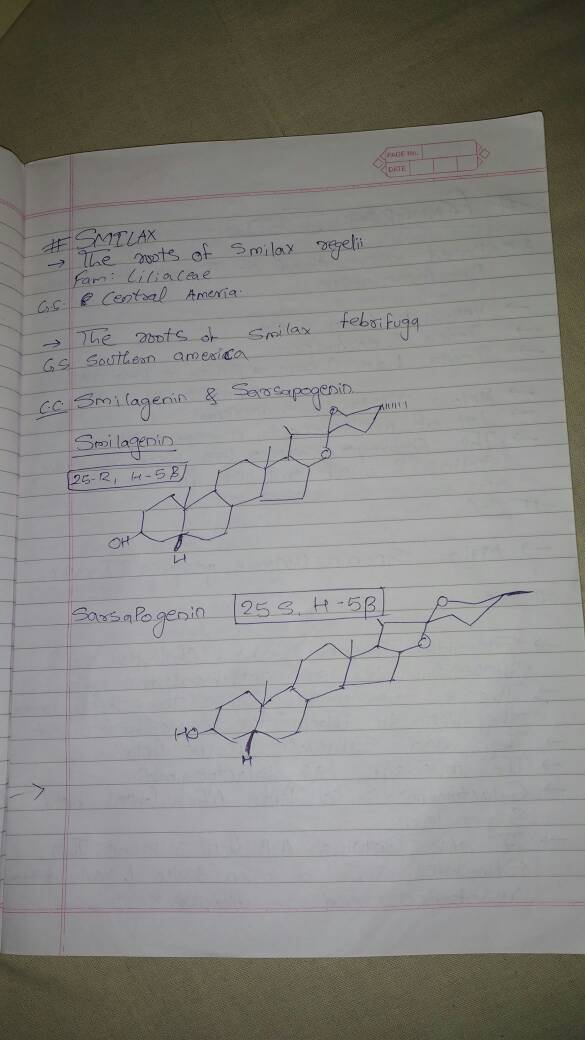 PAGE No.
DATE
# SMILAX
→ The roots of Smilax regelii
Fam: Liliaceae
G.S. Central Ameria.
→ The roots of Smilax febrifuga
GS Southern america
C.C. Smilagenin & Sarsapogenin
Smilagenin
25-R, H-5β
O
O
OH
H
Sarsapogenin 25 S, H-5β
O
O
HO
H
→